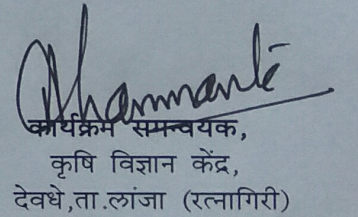 कार्यक्रम समन्वयक,
कृषि विज्ञान केंद्र,
देवधे,ता.लांजा (रत्नागिरी)